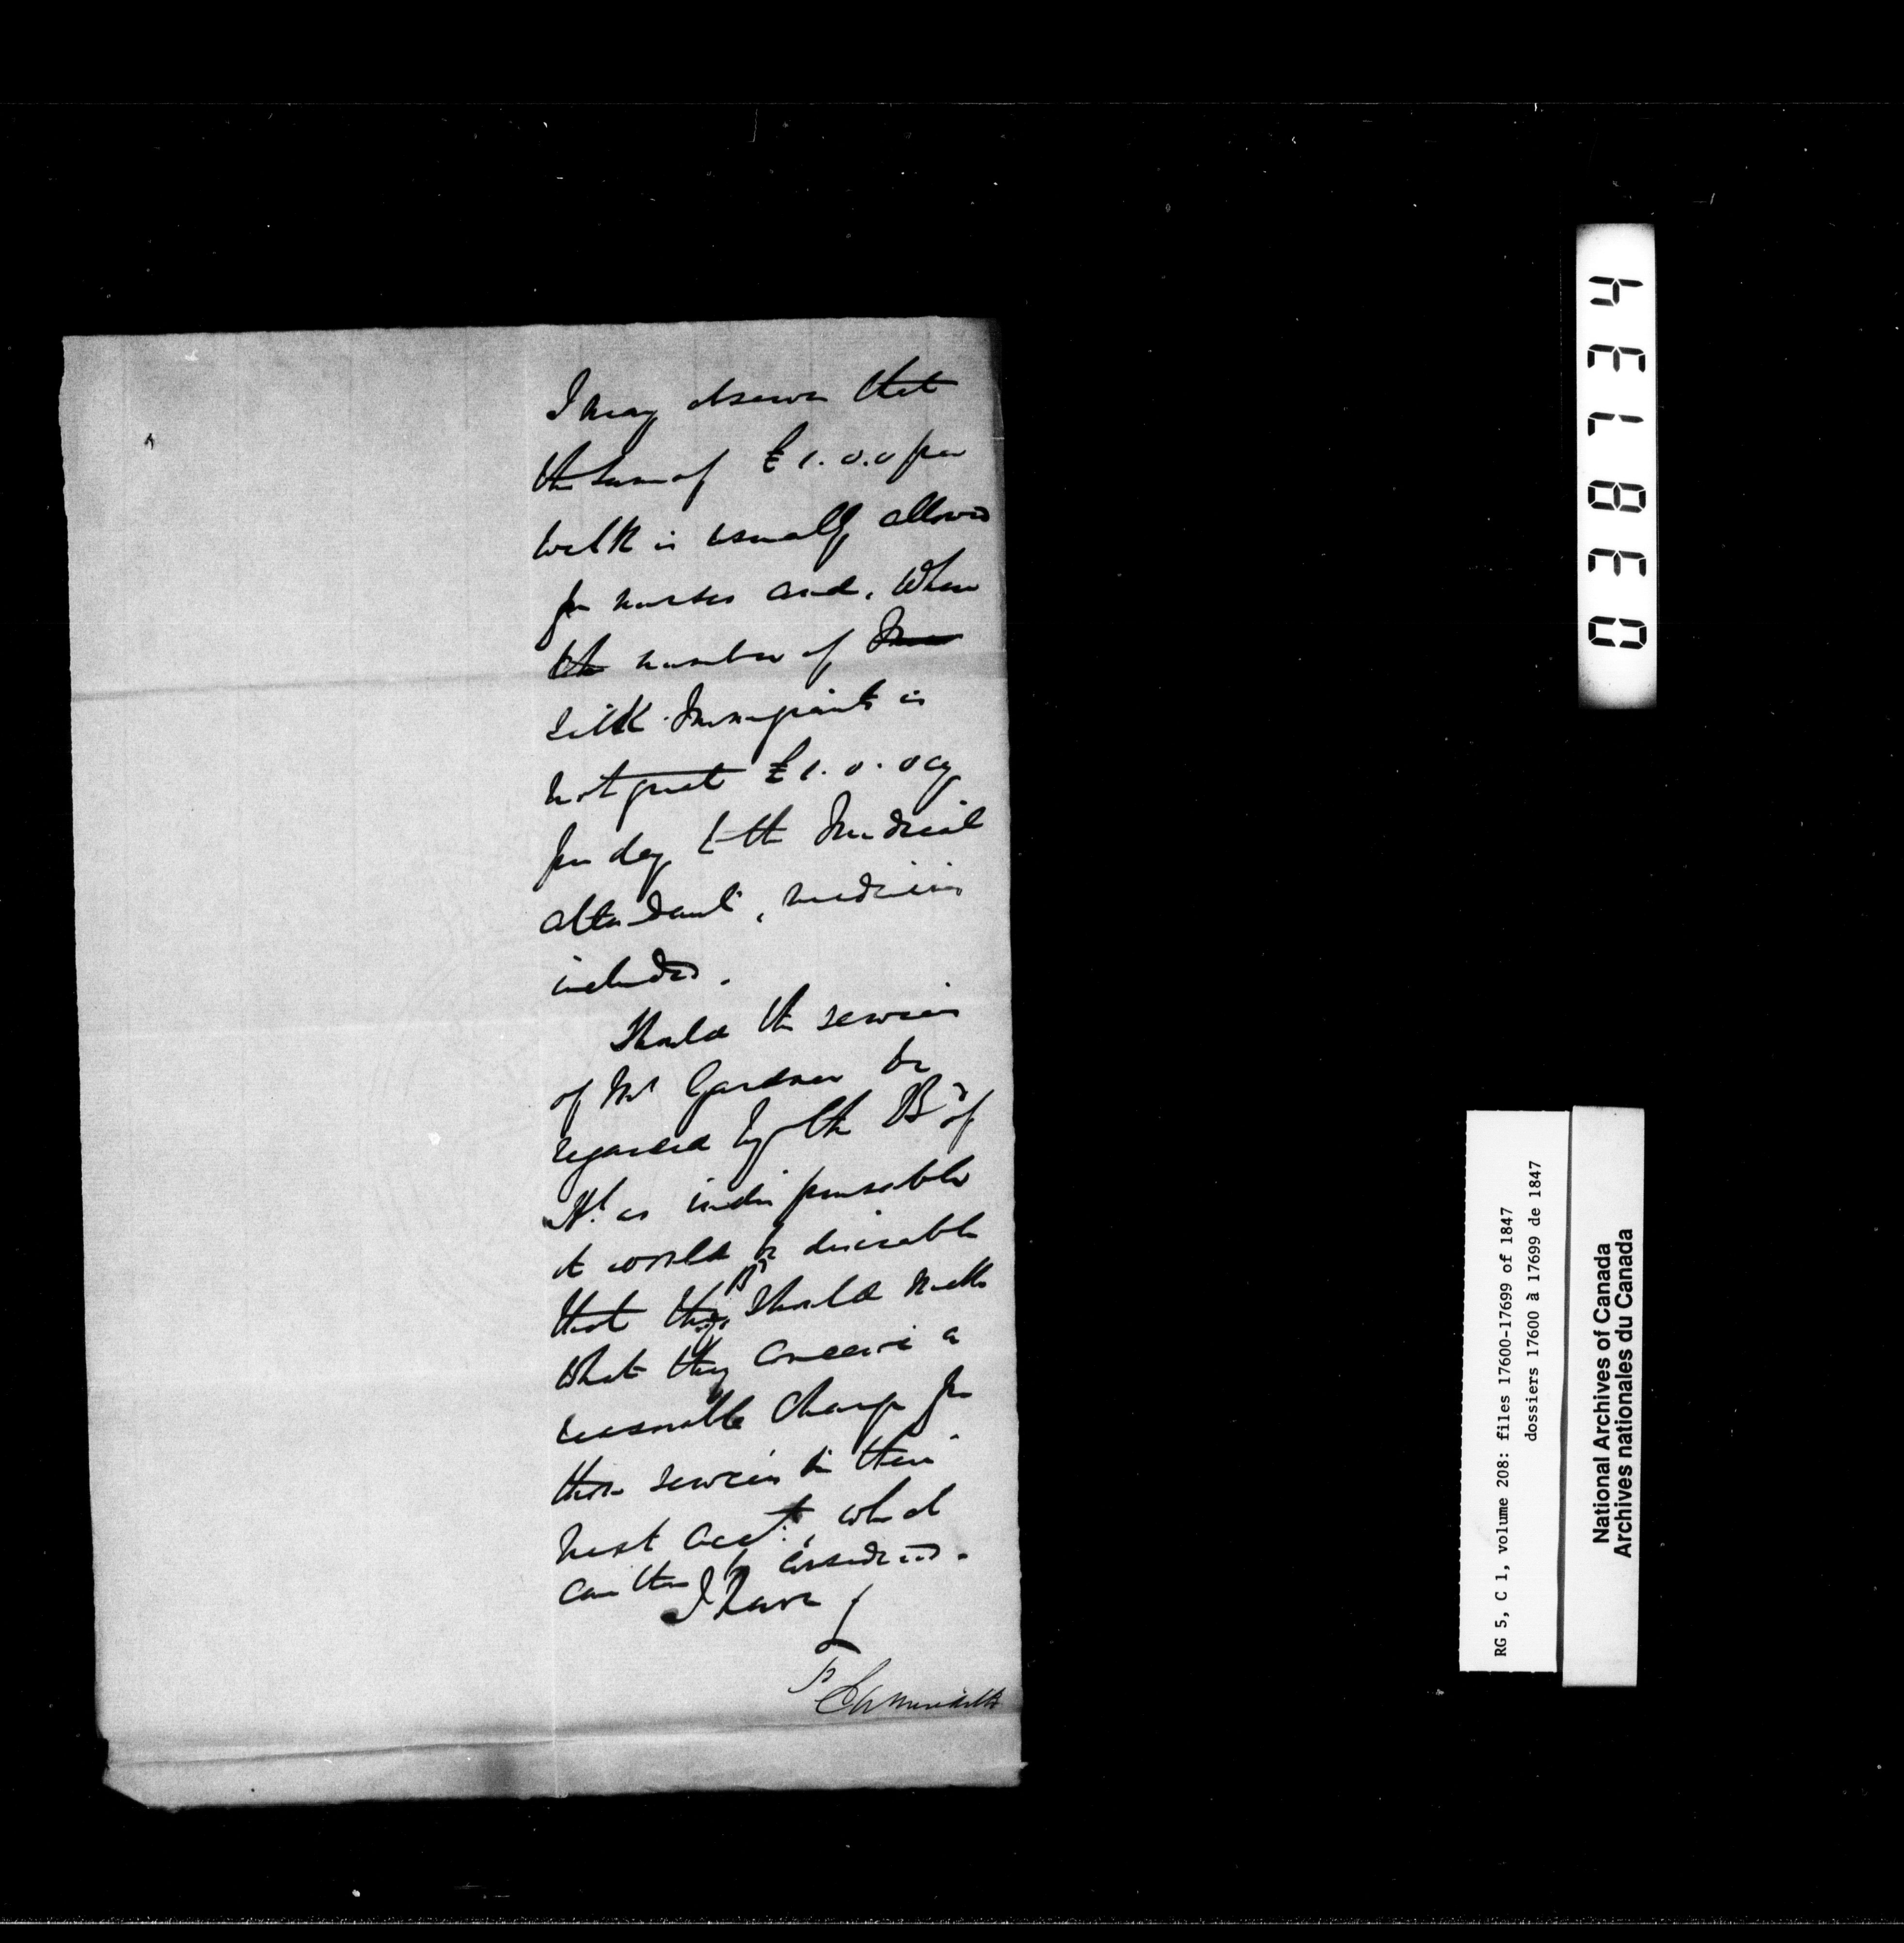 I may observe that
the sum of £1.0.0 per
week is usually allowed
for nurses and, when
the number of
sick Immigrants is
not great £1.0.0 cy
per day to the Medical
attendant, medicines
included.
Should the services
of Mr Gardner be
regarded by the Bd of
Ht. as indispensable
it would be desirable
that the Bd should make
what they conceive a
reasonable charge for
those services in their
next acct., which
can then be considered.
I have &
E A Meredith
031834
RG 5, C 1, volume 208: files 17600-17699 of 1847
dossiers 17600 à 17699 de 1847
National Archives of Canada
Archives nationales du Canada